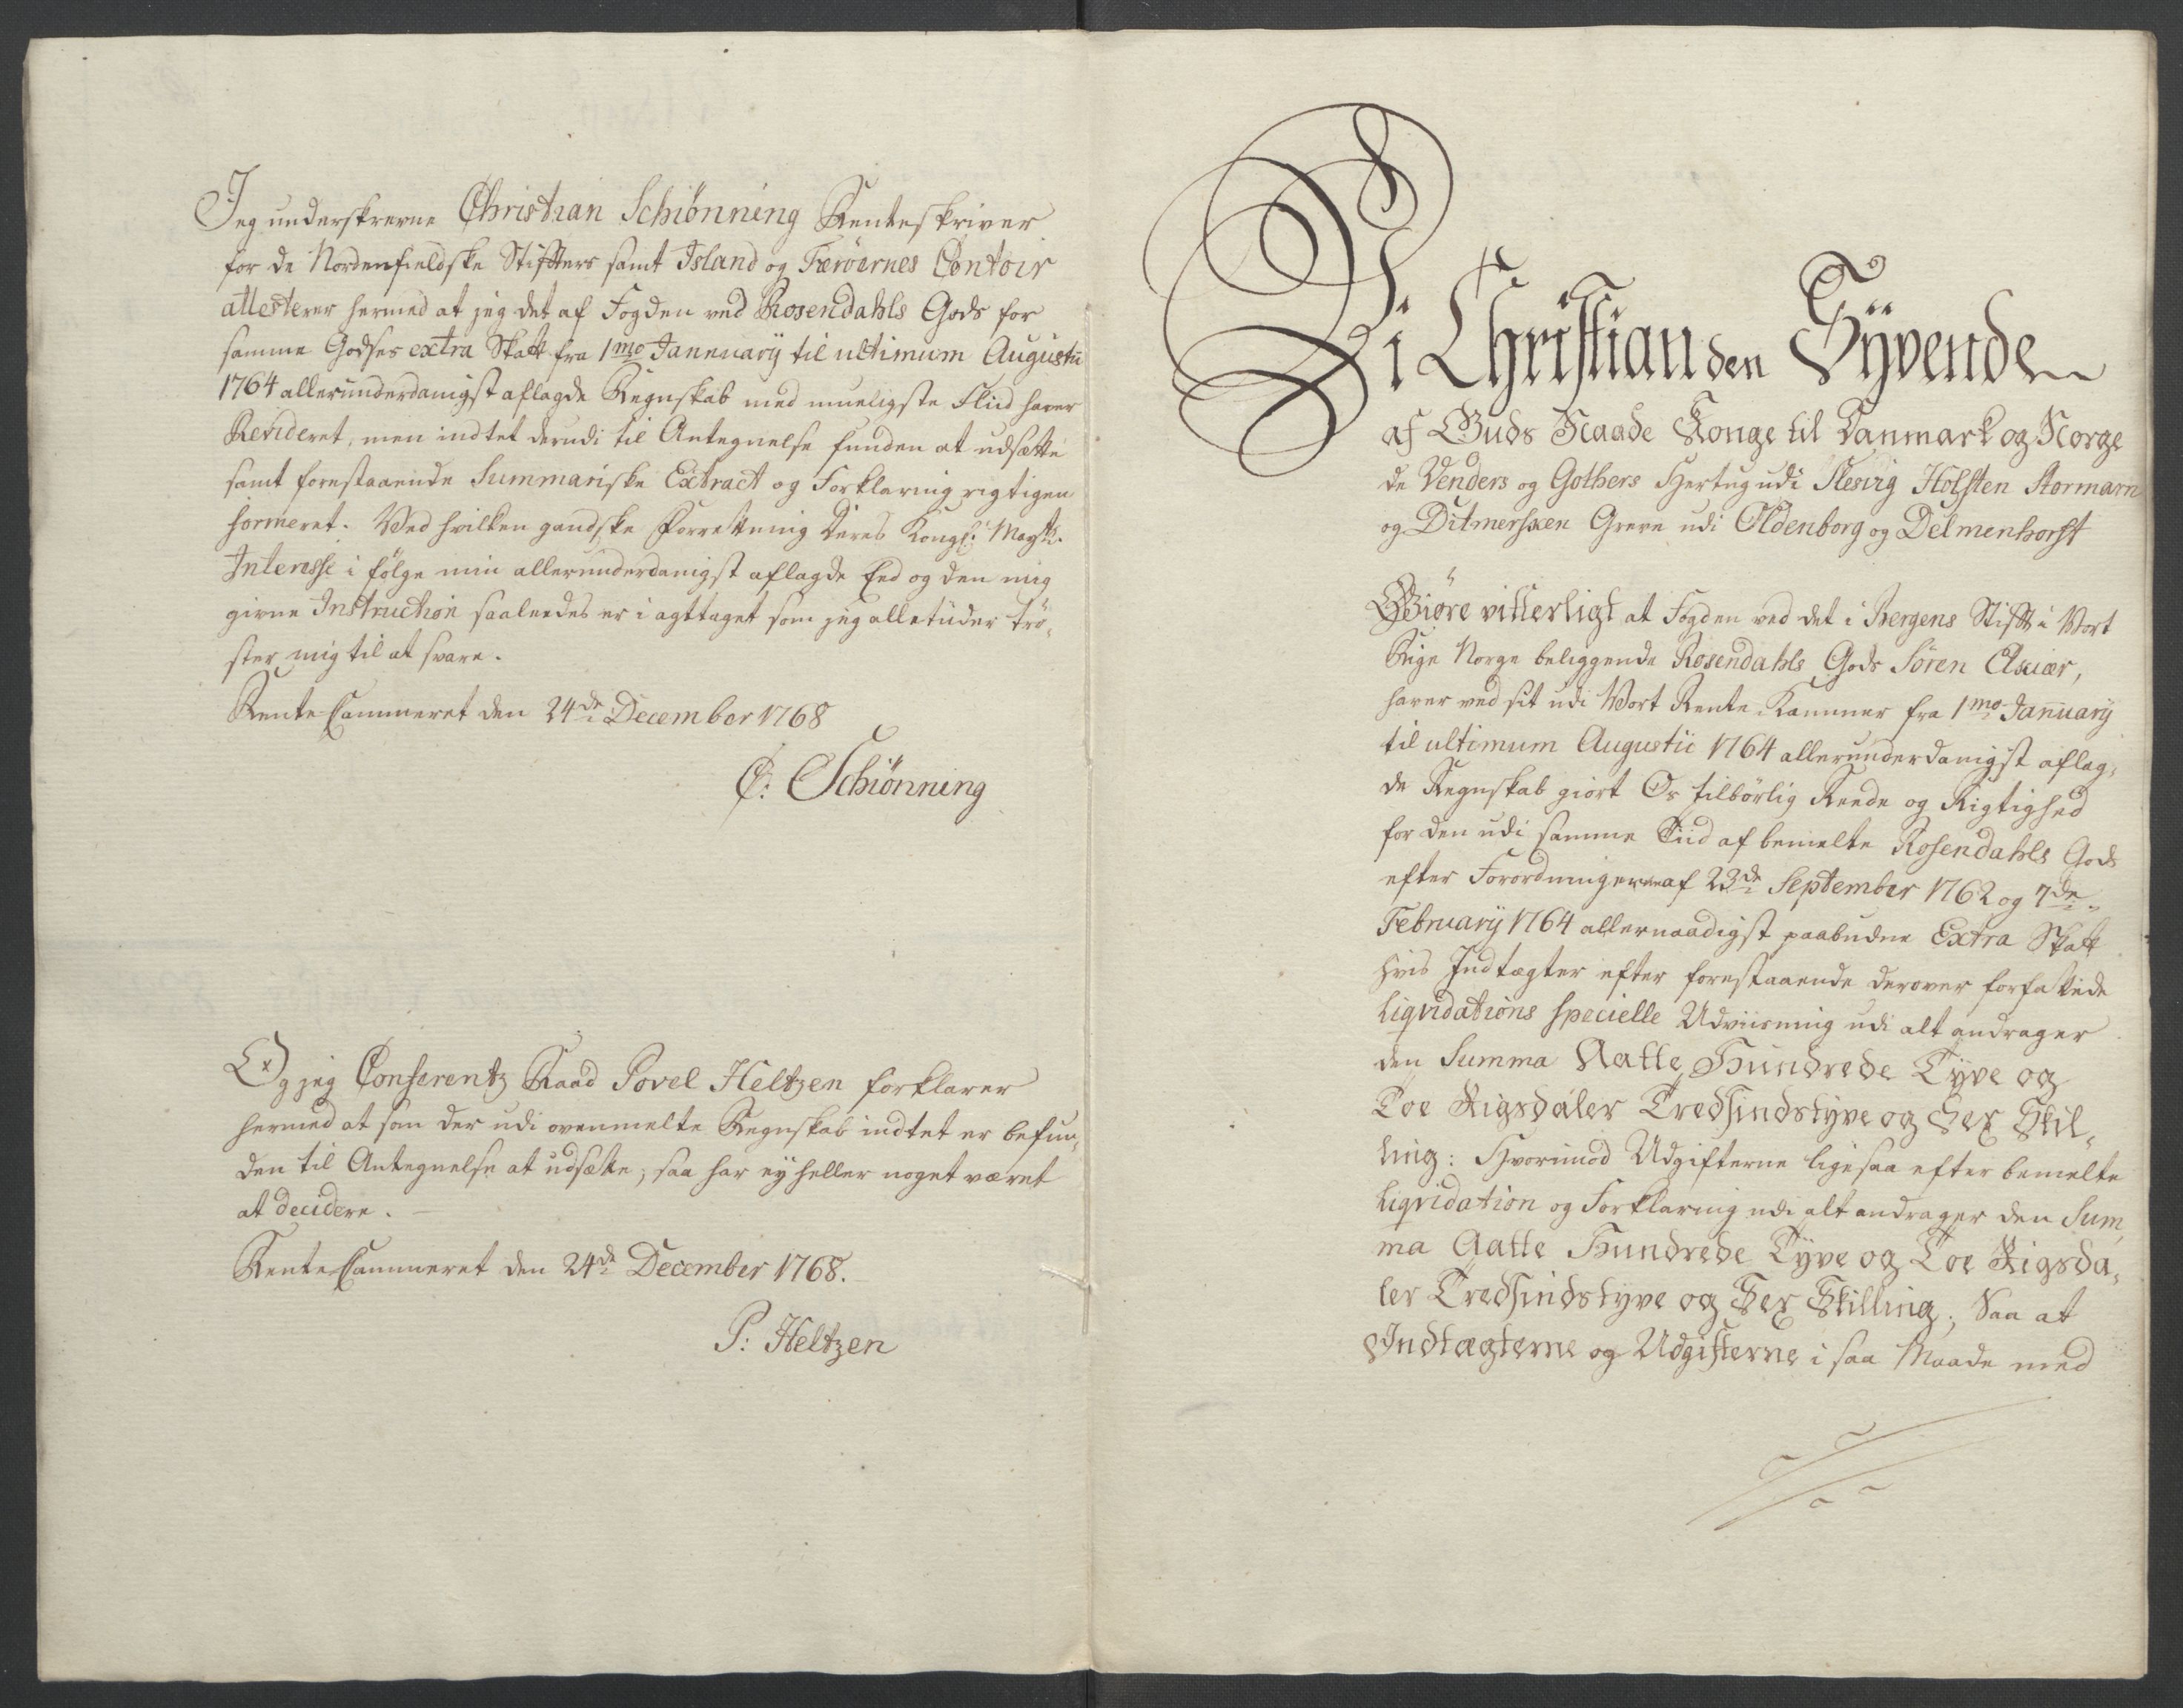 Jeg underskrevne Christian Schiönning Renteskriver
for de Nordenfieldske Stiffters samt Island og Færöernes Contoir
attesterer hermed at jeg det af Fogden ved Rosendahls Gods for
samme Godses extra Skatt fra 1mo Jannuarij til ultimum Augustii
1764 allerunderdanigst aflagde Regnskab med mueligste Fliid haver
Revideret, men indtet derudi til Antegnelse funden at udsætte
samt forestaaende Summariske Extract og Forklaring rigtigen
formeret. Ved hvilken gandske Forrettning Deres Kongl: Maÿts.
Interesse i følge min allerunderdanigst aflagde Eed og den mig
givne Instruction saaledes er i agttaget som jeg alletiider trö-
ster mig til at svare.
Rente-Cammeret den 24de December 1768
C: Schiönning
Og jeg Conferentz Raad Povel Heltzen forklarer
hermed at som der udi ovenmelte Regnskab indtet er befun-
den til Antegnelse at udsætte, saa har ey heller noget været
at decidere.
Rente-Cammeret den 24de December 1768.
P: Heltzen
Vi Christian den Syvende
af Guds Naade Konge til Danmark og Norge
de Venders og Gothers Hertug udi Slesvig Holsten Stormarn
og Ditmersken Greve udi Oldenborg og Delmenhorst
Giöre vitterligt at Fogden ved det i Bergens Stifft i Vort
Rige Norge beliggende Rosendahls Gods Sören
haver ved sit udi Vort Rente-Kammer fra 1mo January
til ultimum Augustii 1764 allerunderdanigst aflag-
de Regnskab giort Os tilbörlig Reede og Rigtighed
for den udi samme Tiid af bemelte Rosendahls Gods
efter Forordningerne af 23de September 1762 og 7de
February 1764 allernaadigst paabudne Extra Skatt
hvis Indtægter efter forestaaende derover forfattede
Liqvidations specielle Udviisning udi alt andrager
den Summa Aatte Hundrede Tyve og
Toe Rigsdaler Tredsindstyve og Sex Skil-
ling: Hvorimod Udgifterne ligesaa efter bemelte
Liqvidation og Forklaring udi alt andrager den Sum-
ma Aatte Hundrede Tyve og Toe Rigsda-
ler Tredsindstyve og Sex Skilling; Saa at
Indtægterne og Udgifterne i saa Maade med